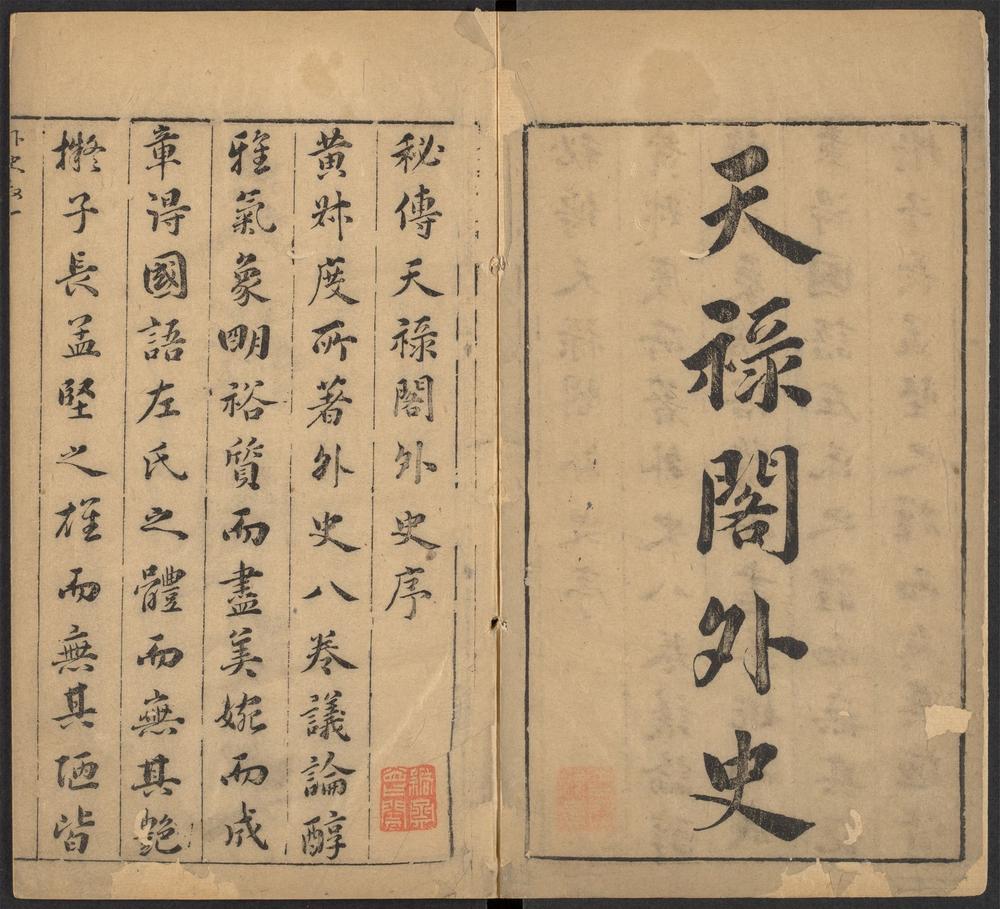 天祿閣外史
秘傳天祿閣外史序
黃叔度所著外史八卷議論醇
雅氣象明裕質而盡美婉而成
章得國語左氏之體而無其艶
擬子長孟堅之雄而無其陋皆